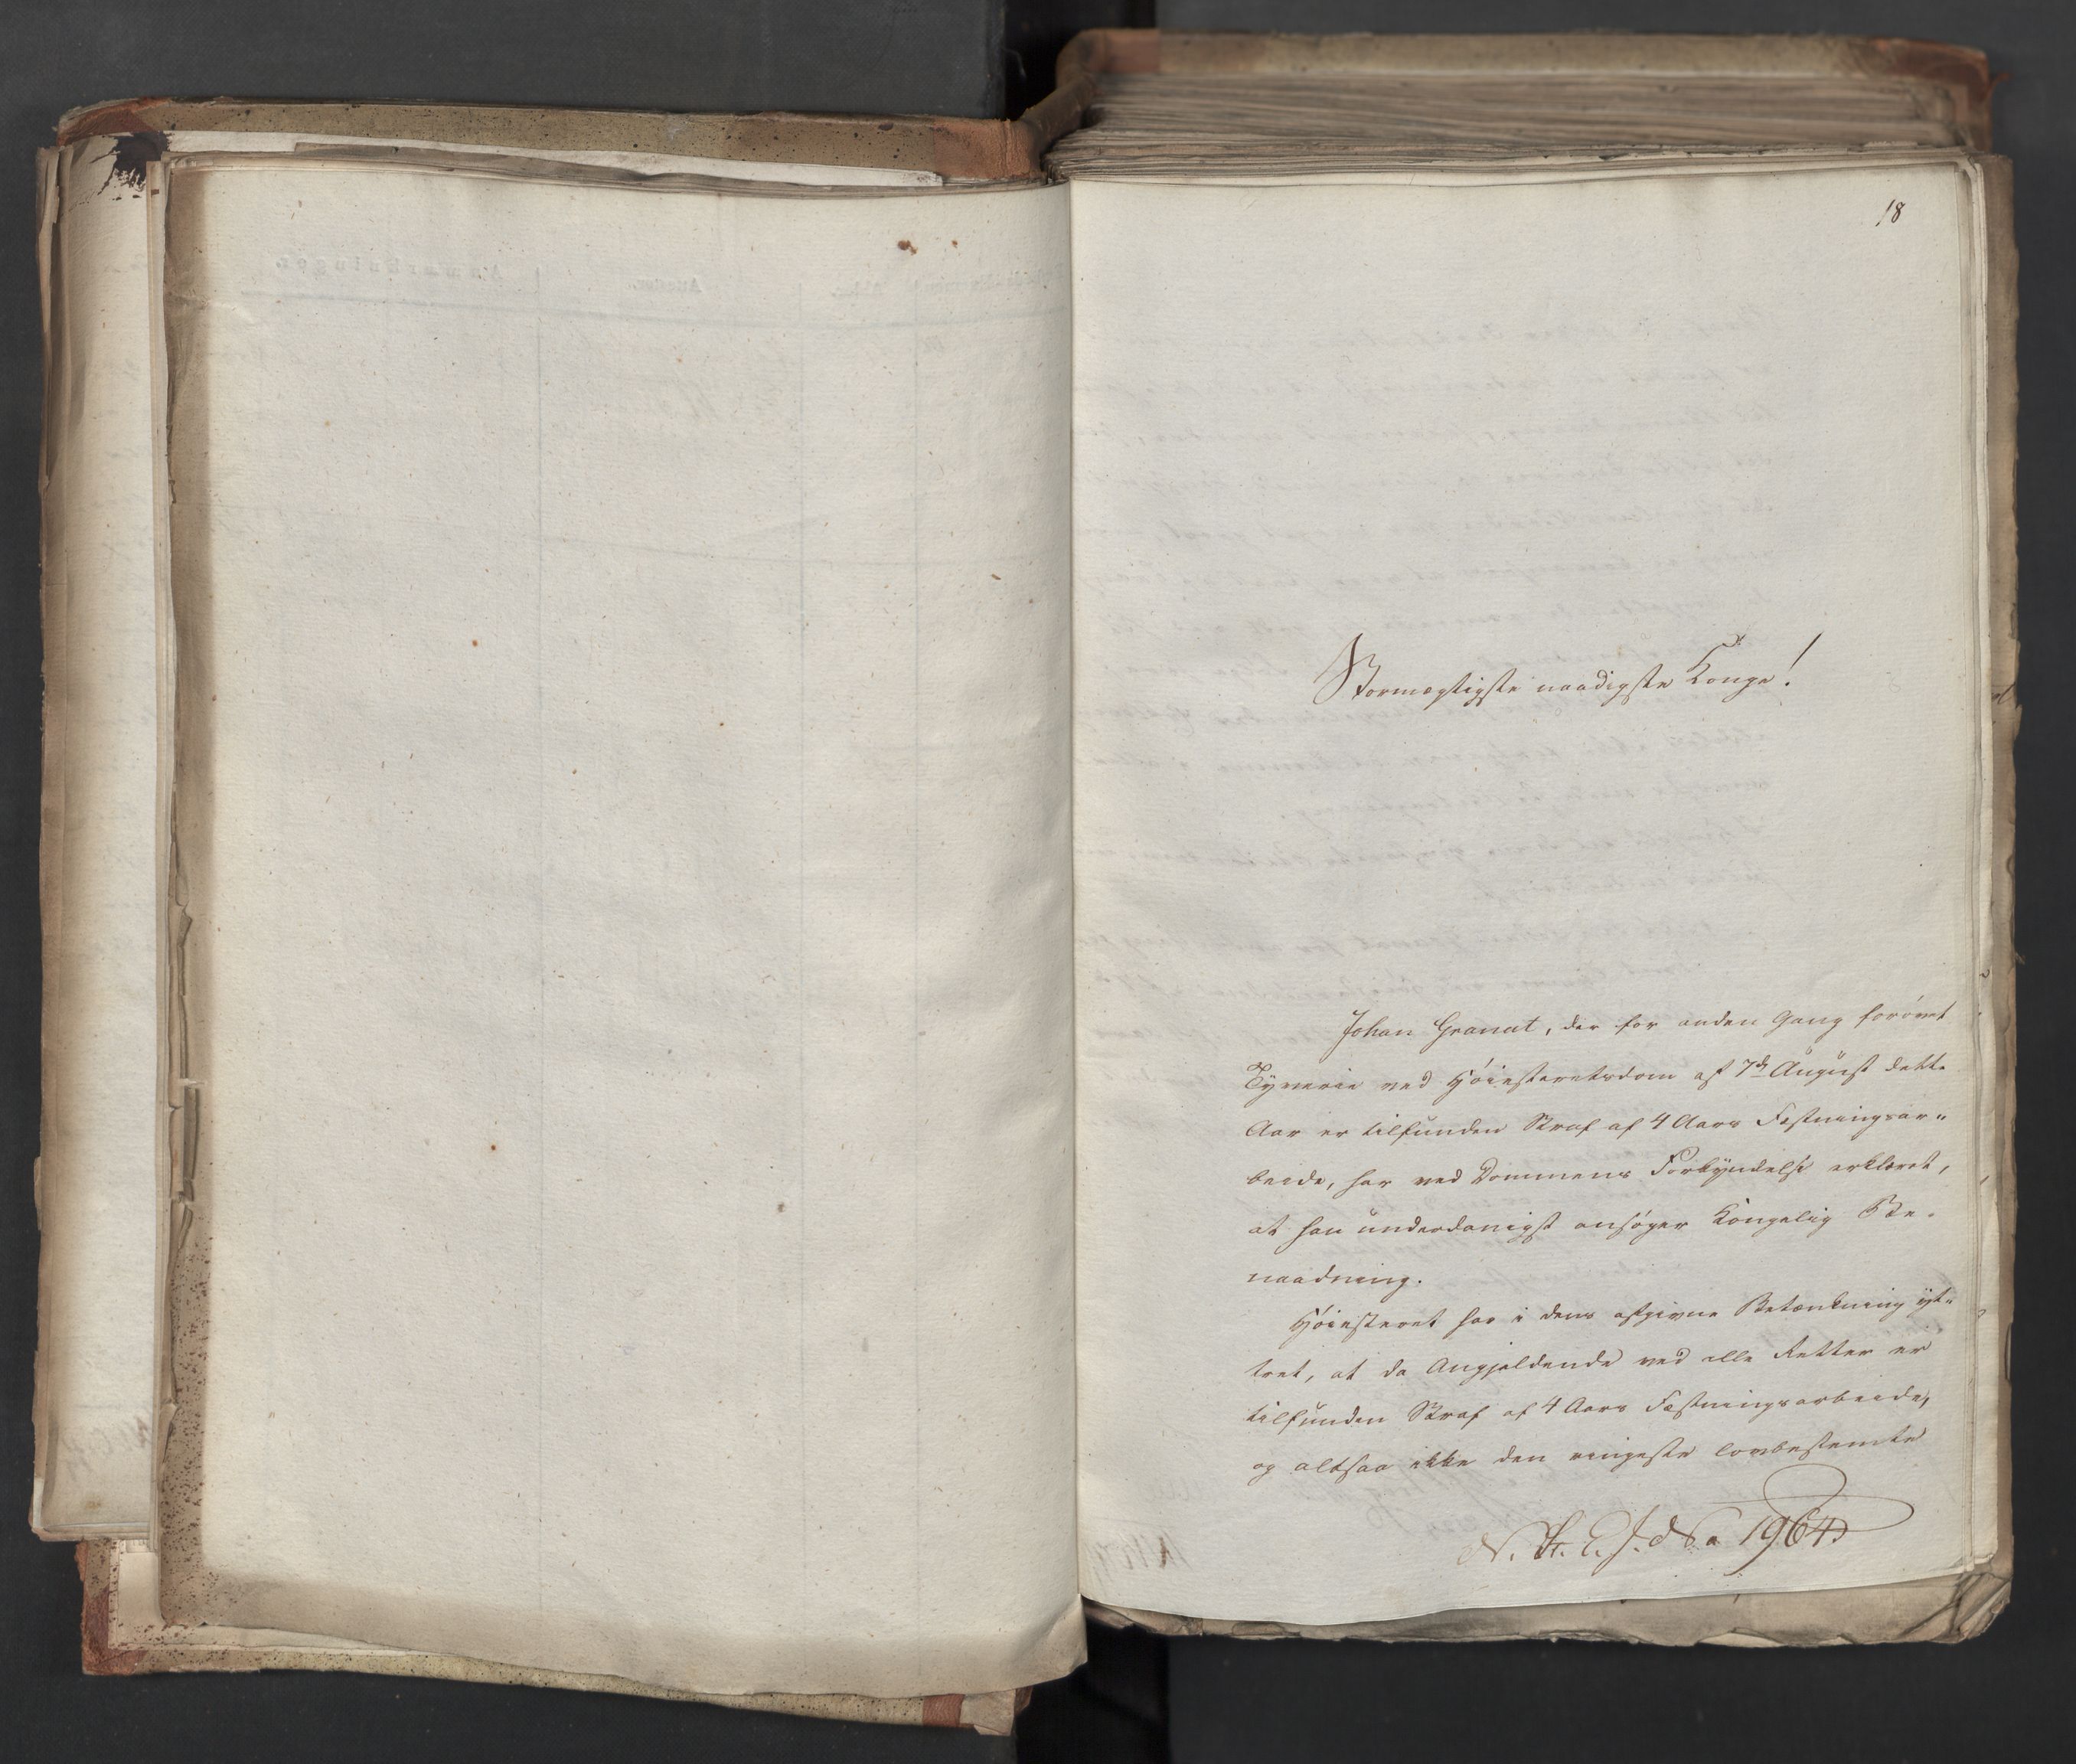 18
Stormægtigste naadigste Konge!
Johan Granat, der for anden Gang forøvet
Tyverie ved Høiesteretsdom af 7de August dette
Aar er tilfunden Straf af 4 Aars Fæstningsar-
beide, har ved Dommens Forkyndelse erklæret,
at han underdanigst ansøger Kongelig Be-
naadning.
Høiesteret har i dens afgivne Betænkning yt-
tret, at da Angjeldende ved alle Retter er
tilfunden Straf af 4 Aars Fæstningsarbeide,
og altsaa ikke den ringeste lovbestemte
No 1964